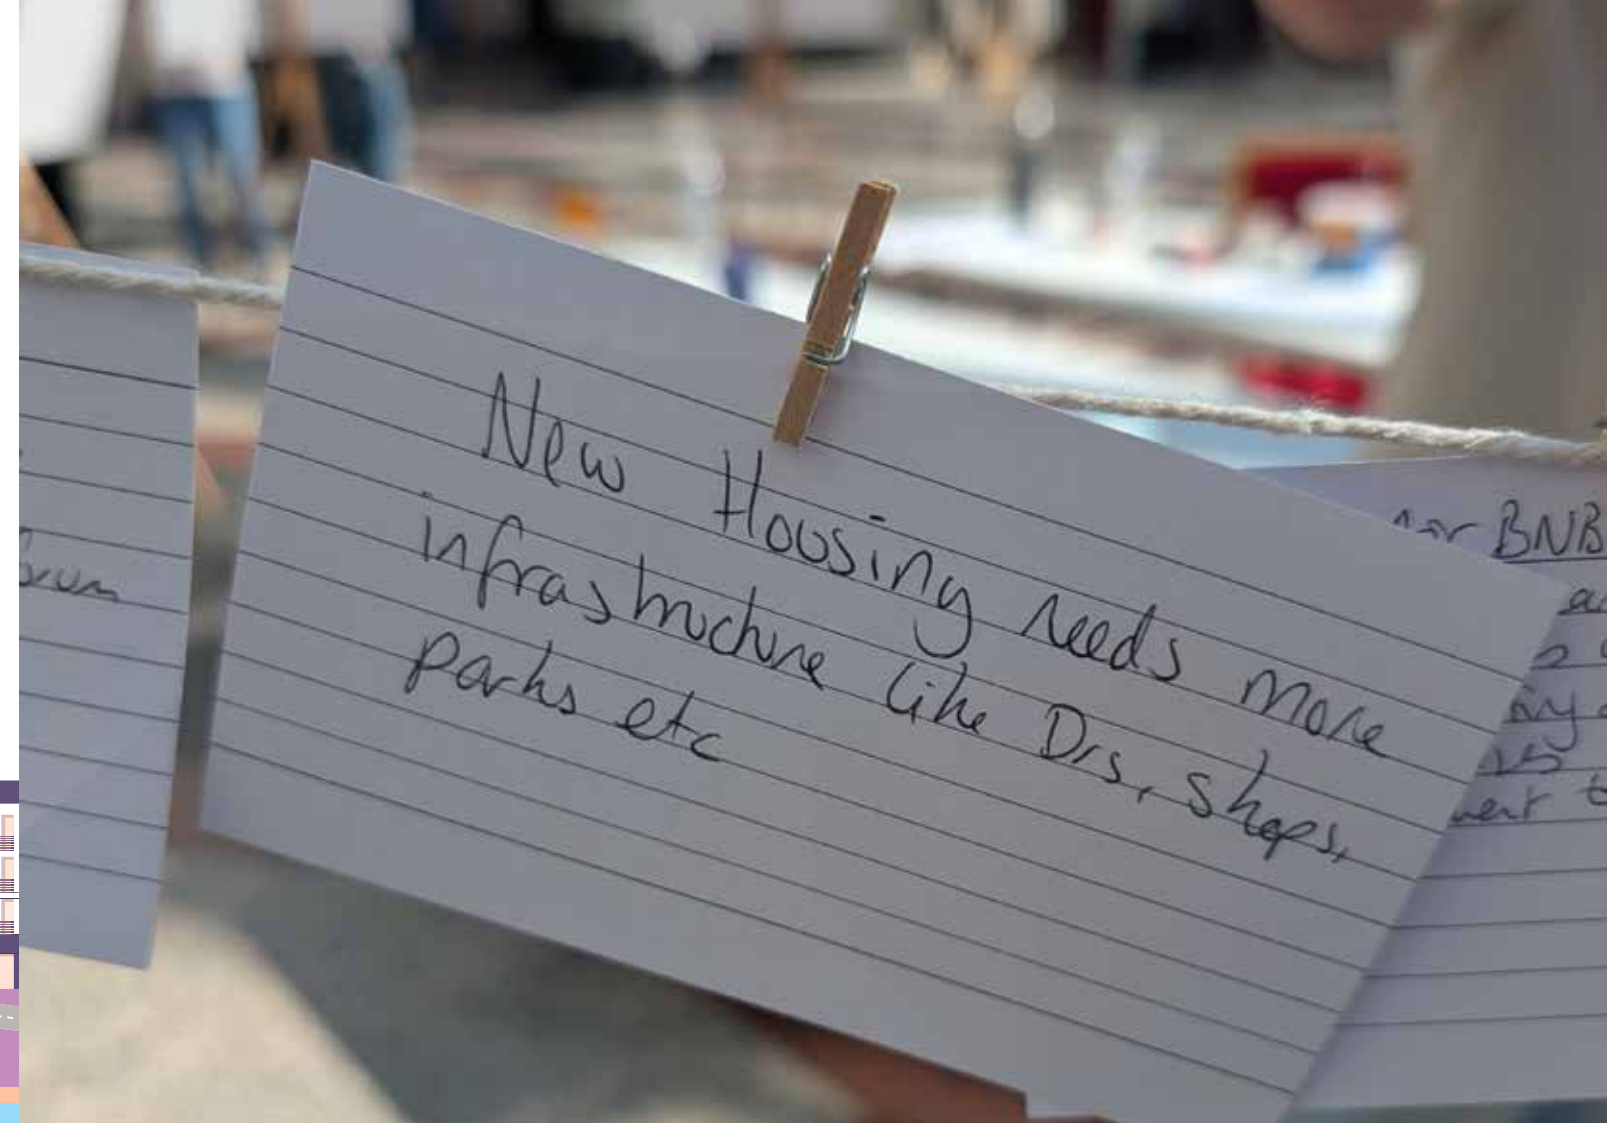 New Housing needs more
infrastructure like Drs, shops,
parks etc
BNB